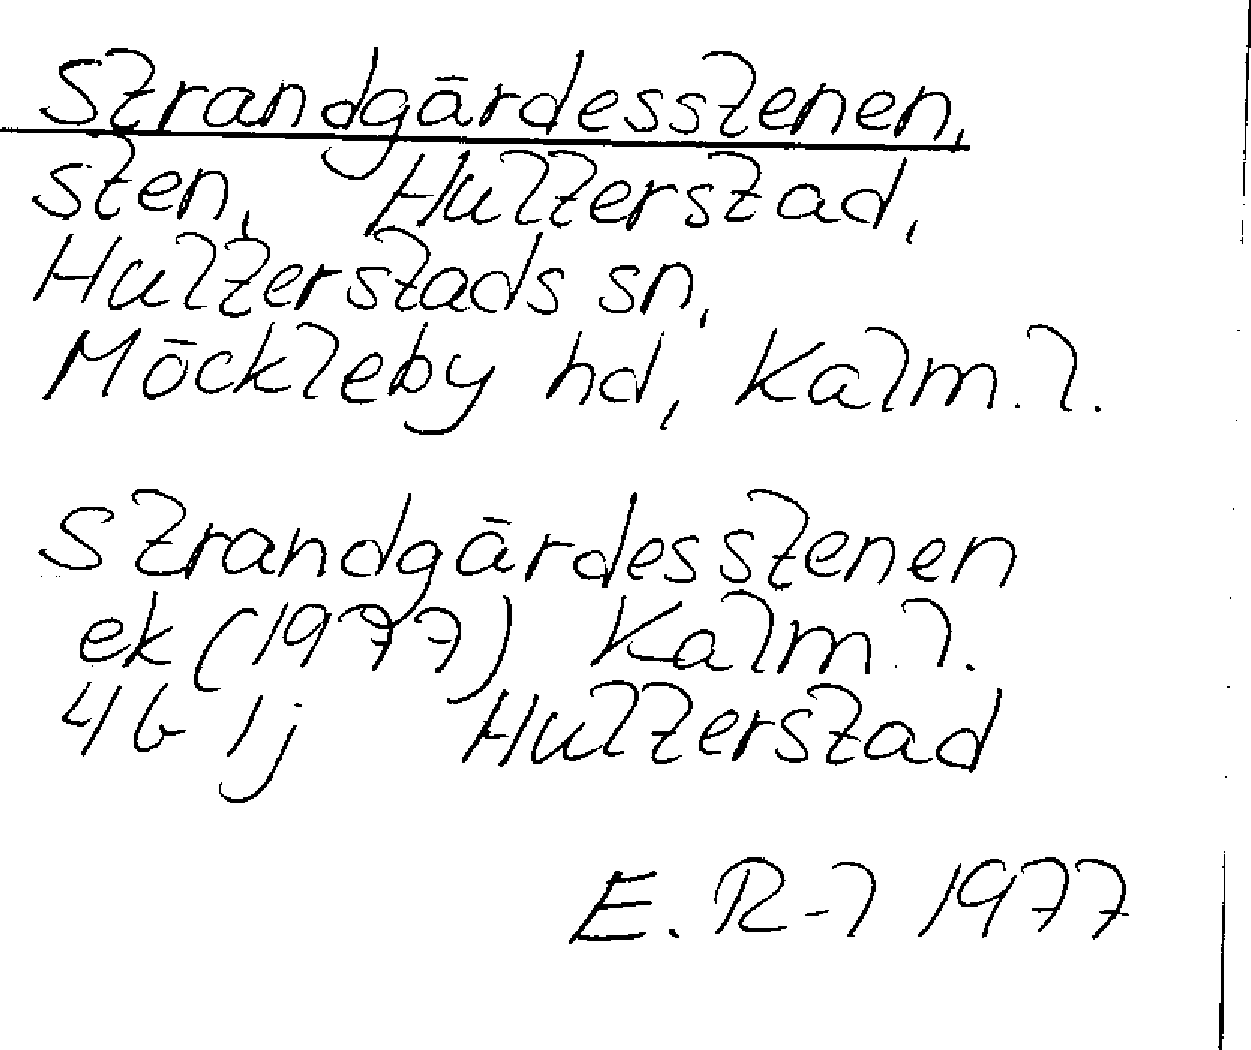 Strandgärdesstenen,
sten, Hulterstad,
Hulterstads sn,
Möckleby hd, Kalm. l.
Strandgärdesstenen
ek (1977) Kalm. l.
4G 1j Hulterstad
E. R-l 1977